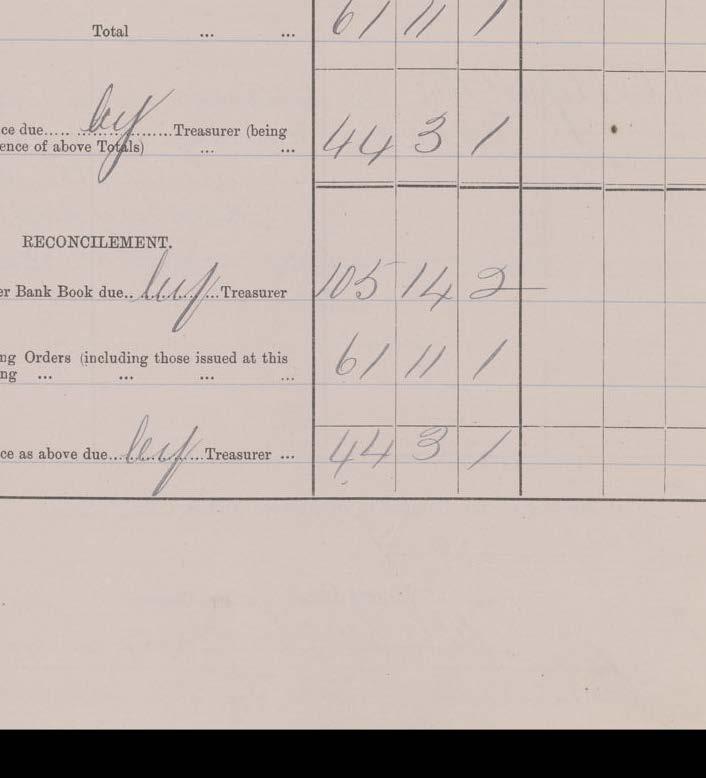 Total ... ... 61 11 1
ce due..... by ......Treasurer (being
ence of above Totals) ... ... 44 3 1
RECONCILEMENT.
er Bank Book due.. by ...Treasurer 105 14 2
ng Orders (including those issued at this
ng ... ... ... ... 61 11 1
ce as above due... by ...Treasurer ... 44 3 1